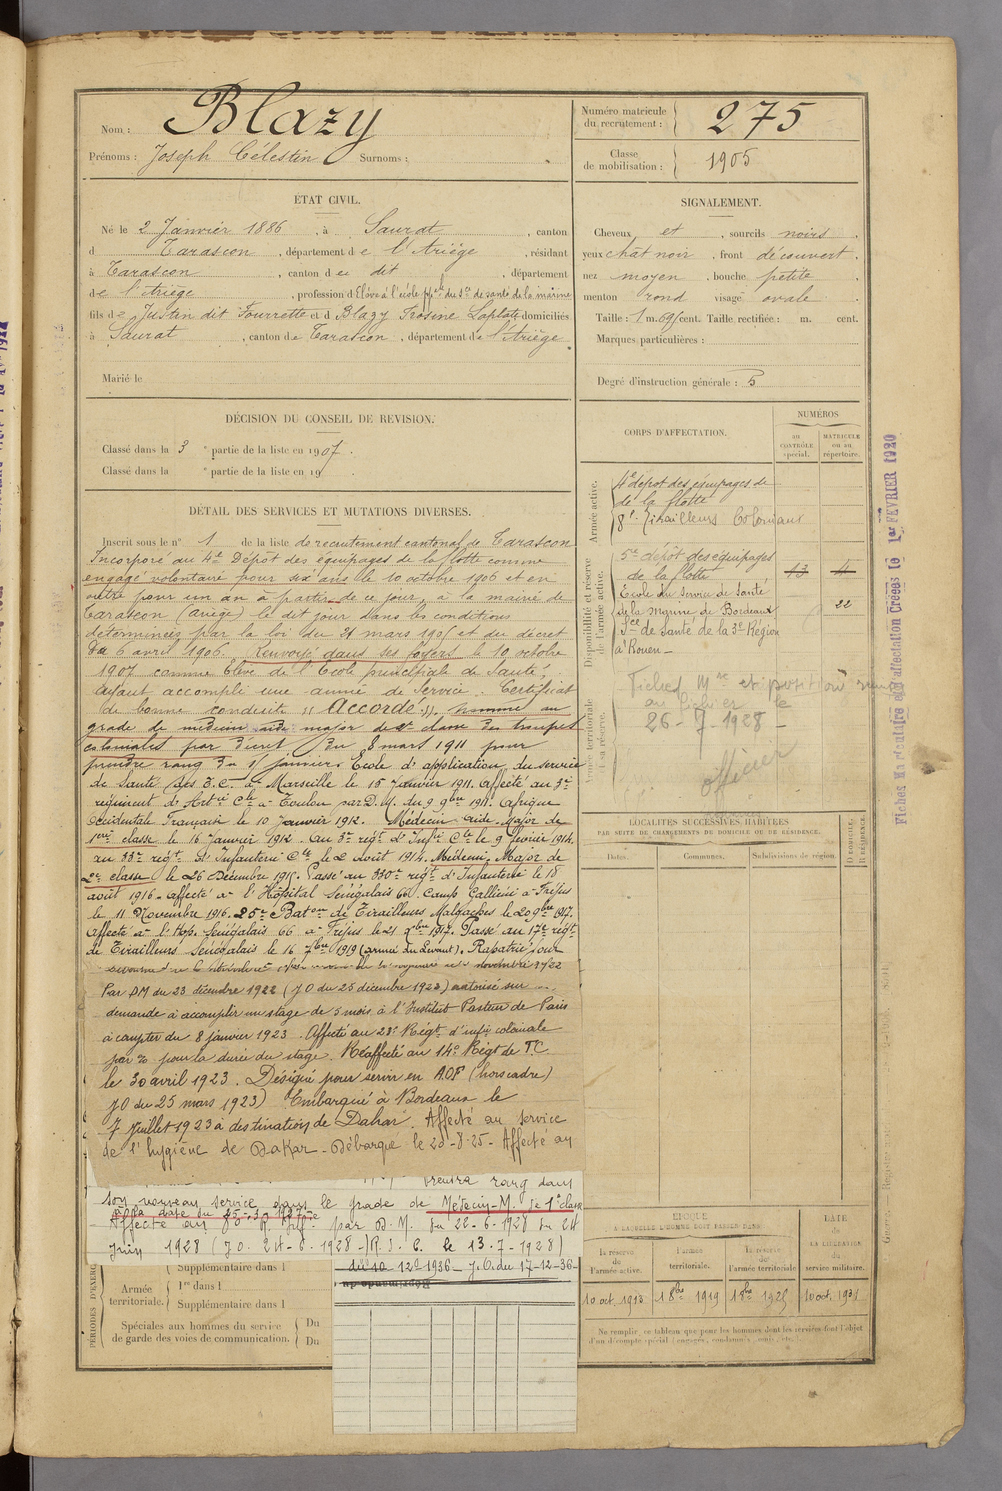 Nom : Blazy
Prénoms : Joseph Célestin Surnoms :
Numéro matricule du recrutement : 275
Classe de mobilisation : 1905
ÉTAT CIVIL.
Né le 2 Janvier 1886 , à Saurat , canton
d Tarascon , département de l'Ariège , résidant
à Tarascon , canton d u dit , département
de l'Ariège , profession d Elève à l'école pple du Sce de santé de la marine
fils de Justin dit Fourrette et d Blazy Laplote domiciliés
à Saurat , canton de Tarascon , département de l'Ariège
Marié le
SIGNALEMENT.
Cheveux et , sourcils noirs
yeux chât noir , front découvert ,
nez moyen , bouche petite ,
menton rond visage ovale .
Taille : 1 m. 69 cent. Taille rectifiée : m. cent.
Marques particulières :
Degré d'instruction générale : 5
DÉCISION DU CONSEIL DE REVISION.
Classé dans la 3 e partie de la liste en 1907 .
Classé dans la e partie de la liste en 19
DÉTAIL DES SERVICES ET MUTATIONS DIVERSES.
Inscrit sous le n° 1 de la liste de recrutement cantonal de Tarascon
Incorporé au 4e Dépôt des équipages de la flotte comme
engagé volontaire pour six ans le 10 octobre 1906 et en
outre pour un an à partir de ce jour, à la mairie de
Tarascon (ariège) le dit jour dans les conditions
déterminées par la loi du 21 mars 1905 et du décret
du 6 avril 1906. Renvoyé dans ses foyers le 10 octobre
1907 comme Elève de l'Ecole principale de Santé,
ayant accompli une année de Service. Certificat
de bonne conduite "Accordé". nommé au
grade de médecin aide major de 2e classe des troupes
coloniales par décret du 8 mars 1911 pour
prendre rang du janvier. Ecole d'application du service
de Santé des T.C. à Marseille le 15 Janvier 1911. Affecté au 3e
régiment d'Artie Cle à Toulon par D.M. du 9 9bre 1911. Afrique
Occidentale Française le 10 Janvier 1912. Médecin Aide-Major de
1ère classe le 16 Janvier 1912. Au 3e régt d'Infie Cle le 9 février 1914.
au 33e régt d'Infanterie Cle le 2 Août 1914. Médecin-Major de
2e classe le 26 Décembre 1915. Passé au 330e régt d'Infanterie le 18
août 1916. affecté à l'Hôpital Sénégalais Camp Galliéni à Fréjus
le 11 Novembre 1916. 25e Baton de Tirailleurs Malgaches le 20 9bre 1917.
Affecté à l'Hop. Sénégalais 66 à Fréjus le 21 9bre 1917. Passé au 17e régt
de Tirailleurs Sénégalais le 16 7bre 1919 (armée du Levant). Rapatrié pour
novembre 1922
Par DM du 23 décembre 1922 (JO du 25 décembre 1922) autorisé sur
demande à accomplir un stage de 5 mois à l'Institut Pasteur de Paris
à compter du 8 janvier 1923. Affecté au 23e Régt d'infie coloniale
pour la durée du stage. Réaffecté au 14e Régt de T.C.
le 30 avril 1923. Désigné pour servir en AOF (hors cadre)
JO du 25 mars 1923) Embarqué à Bordeaux le
7 Juillet 1923 à destination de Dakar. Affecté au service
de l'hygiène de Dakar - Débarqué le 20-8-25 - Affecté au
prendre rang dans
son nouveau service dans le grade de Médecin-M. de 1e classe
à la date du 25-3-1927
Affecté au par D.M. du 22-6-1928 du 24
juin 1928 (JO. 24-6-1928-) R.I.C. le 13.7-1928)
1936 - J.O. du 17-12-36-
CORPS D'AFFECTATION.
NUMÉROS
au CONTRÔLE spécial.
MATRICULE ou au répertoire.
Armée active.
4e dépôt des équipages de
de la flotte
8e Tirailleurs Coloniaux
Disponibilité et réserve de l'armée active.
5e dépôt des équipages
de la flotte 13 4
Ecole du Service de Santé
de la Marine de Bordeaux 22
Sce de Santé de la 3e Région
à Rouen -
Armée territoriale et sa réserve.
Fiches Mle et position
au fichier le
26-7-1928-
officier
Fiches Matriculaire et d'affectation Créées le 1er FÉVRIER 1920
LOCALITÉS SUCCESSIVES HABITÉES
PAR SUITE DE CHANGEMENTS DE DOMICILE OU DE RÉSIDENCE.
Dates. Communes. Subdivisions de région. D DOMICILE. R RÉSIDENCE.
ÉPOQUE
À LAQUELLE L'HOMME DOIT PASSER DANS
la réserve de l'armée active. l'armée territoriale. la réserve de l'armée territoriale
DATE de LA LIBÉRATION du service militaire.
10 oct. 1913 1 8bre 1919 1 8bre 1925 10 oct. 1931
Ne remplir ce tableau que pour les hommes dont les services font l'objet
d'un décompte spécial (engagés, condamnés, omis, etc.)
PÉRIODES D'EXERC
Supplémentaire dans l
Armée territoriale. 1re dans l
Supplémentaire dans l
Spéciales aux hommes du service de garde des voies de communication. Du
Du